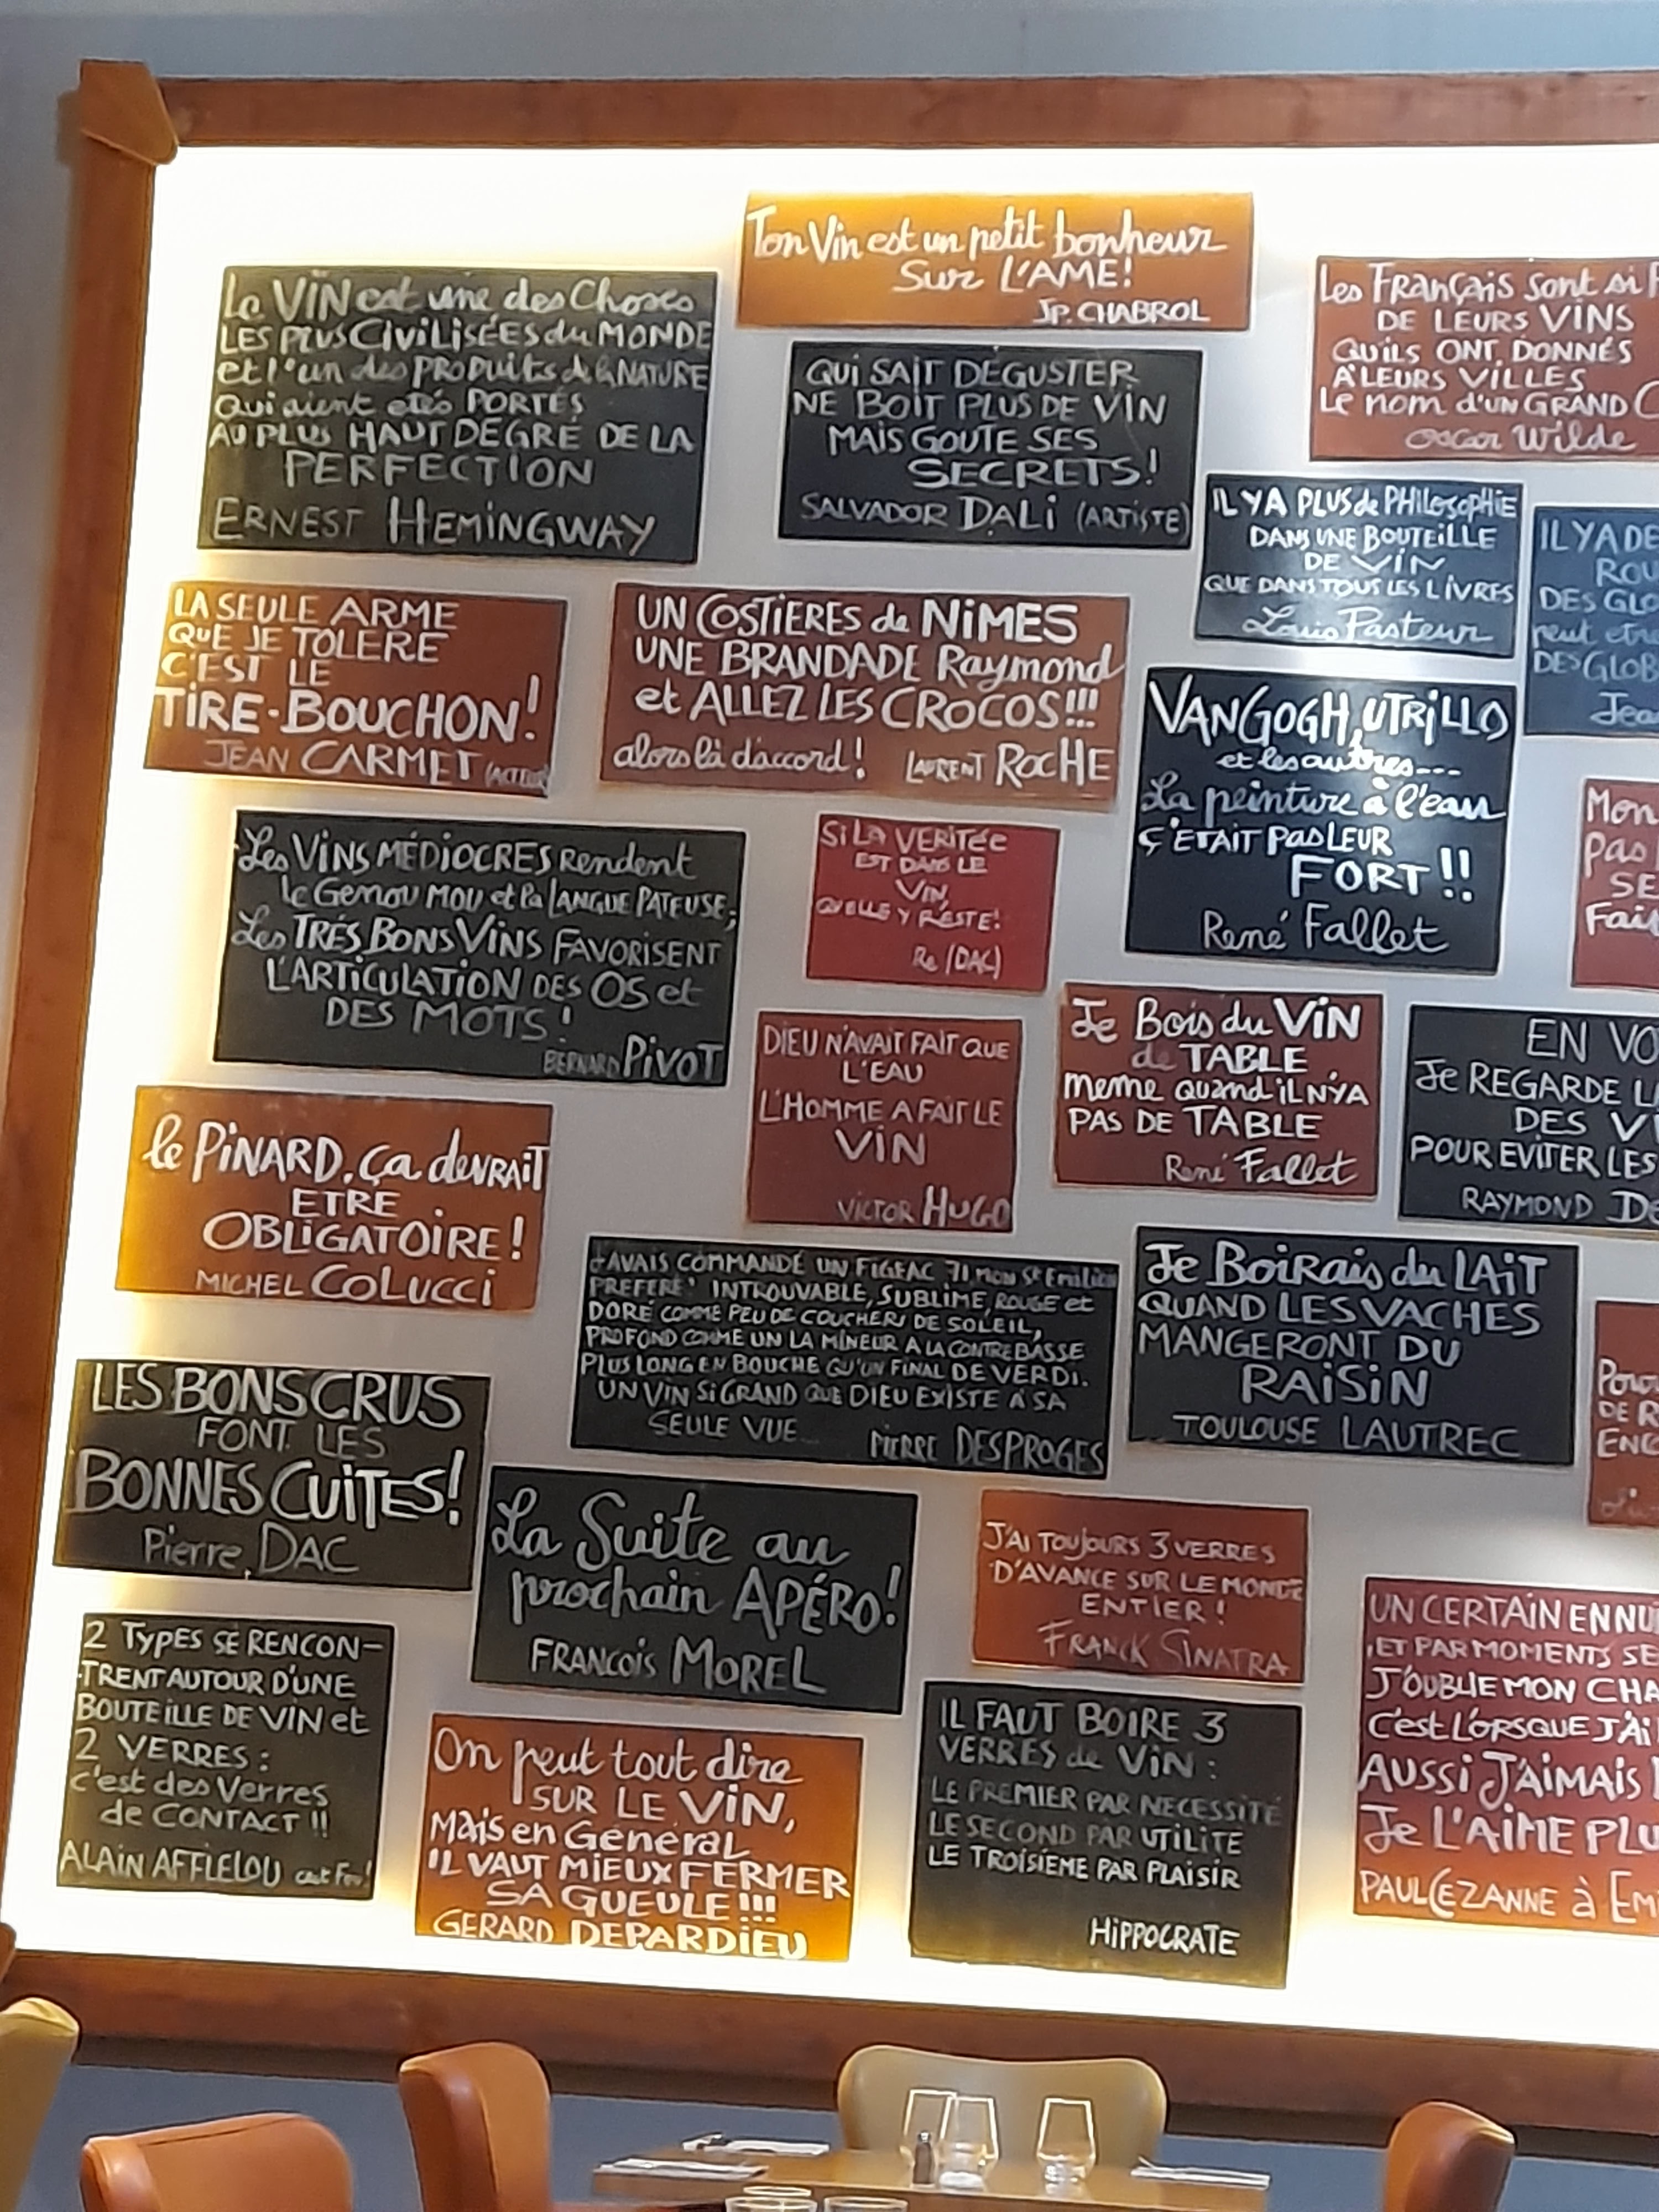 Ton Vin est un petit bonheur
Sur L'AME!
JP. CHABROL
Le ViN est une des Choses
LES PLUS CiViLiSÉES du MONDE
et l'un des PRODuits de la NATURE
Qui aient etés PORTÉS
AU PLUS HAUT DEGRÉ DE LA
PERFECTION
ERNEST HEMiNGWAY
QUi SAiT DÉGUSTER
NE BOiT PLUS DE ViN
MAIS GOUTE SES
SECRETS!
SALVADOR DALi (ARTiSTE)
Les FRANçAis sont si
DE LEURS VINS
QU'iLS ONT DONNÉS
A LEURS VILLES
Le nom d'UN GRAND
Oscar Wilde
iL Y A PLUS de PHiLosophie
DANS UNE BOUTEiLLE
DE ViN
QUE DANS TOUS LES LiVRES
Louis Pasteur
IL Y A DE
DES GLO
peut etre
DES GLOB
LA SEULE ARME
QUE JE TOLERE
C'EST LE
TiRE-BOUCHON!
JEAN CARMET (ACTEUR)
UN COSTIÈRES de NiMES
UNE BRANDADE Raymond
et ALLEZ LES CROCOS!!!
alors là d'accord! LAURENT ROCHE
VANGOGH, UTRiLLO
et les autres---
La peinture à l'eau
ç'ETAiT PAS LEUR
FORT!!
René Fallet
Mon
pas
SE
Fai
Les ViNS MÉDiOCRES Rendent
le Genou MOU et la LANGUE PATEUSE;
Les TRÉS BONS ViNS FAVORiSENT
L'ARTiCULATiON DES OS et
DES MOTS!
BERNARD PiVOT
Si LA VERiTée
EST DANS LE
ViN,
QU'ELLE Y RESTE!
Re (DAC)
DiEU N'AVAiT FAiT QUE
L'EAU
L'HOMME A FAiT LE
ViN
VICTOR HUGO
Je Bois du ViN
de TABLE
meme quand iL N'YA
PAS DE TABLE
René Fallet
EN VO
Je REGARDE
DES V
POUR EViTER LES
RAYMOND
le PiNARD, ça devRAiT
ETRE
OBLiGATOiRE!
MiCHEL COLUCCi
J'AVAIS COMMANDÉ UN FIGEAC 71, MON St Emilion
PREFERE' INTROUVABLE, SUBLIME, ROUGE et
DORÉ COMME PEU DE COUCHERS DE SOLEIL,
PROFOND COMME UN LA MINEUR A LA CONTREBASSE
PLUS LONG EN BOUCHE QU'UN FINAL DE VERDI.
UN VIN Si GRAND QUE DIEU EXISTE À SA
SEULE VUE...
PIERRE DESPROGES
Je BoiRais du LAiT
QUAND LES VACHES
MANGERONT DU
RAiSiN
TOULOUSE LAUTREC
DE R
LES BONS CRUS
FONT LES
BONNES CUiTES!
Pierre, DAC
La Suite au
prochain APÉRO!
FRANCOiS MOREL
J'Ai TOUjOURS 3 VERRES
D'AVANCE SUR LE MONDE
ENTiER!
FRANCK SiNATRA
UN CERTAiN ENNUi
,ET PAR MOMENTS SE
J'OUBLiE MON CHA
C'est LORSQUE J'Ai
AUSSi J'AiMAiS
Je L'AiME PLU
PAUL CEZANNE à
2 TYPES SE RENCON-
-TRENT AUTOUR D'UNE
BOUTEiLLE DE ViN et
2 VERRES:
c'est des Verres
de CONTACT!!
ALAiN AFFLELOU
On peut tout dire
SUR LE ViN,
Mais en Général
iL VAUT MiEUX FERMER
SA GUEULE!!!
GERARD DEPARDiEU
iL FAUT BOiRE 3
VERRES de ViN:
LE PREMiER PAR NECESSiTÉ
LE SECOND PAR UTiLiTE
LE TROiSiEME PAR PLAiSiR
HiPPOCRATE